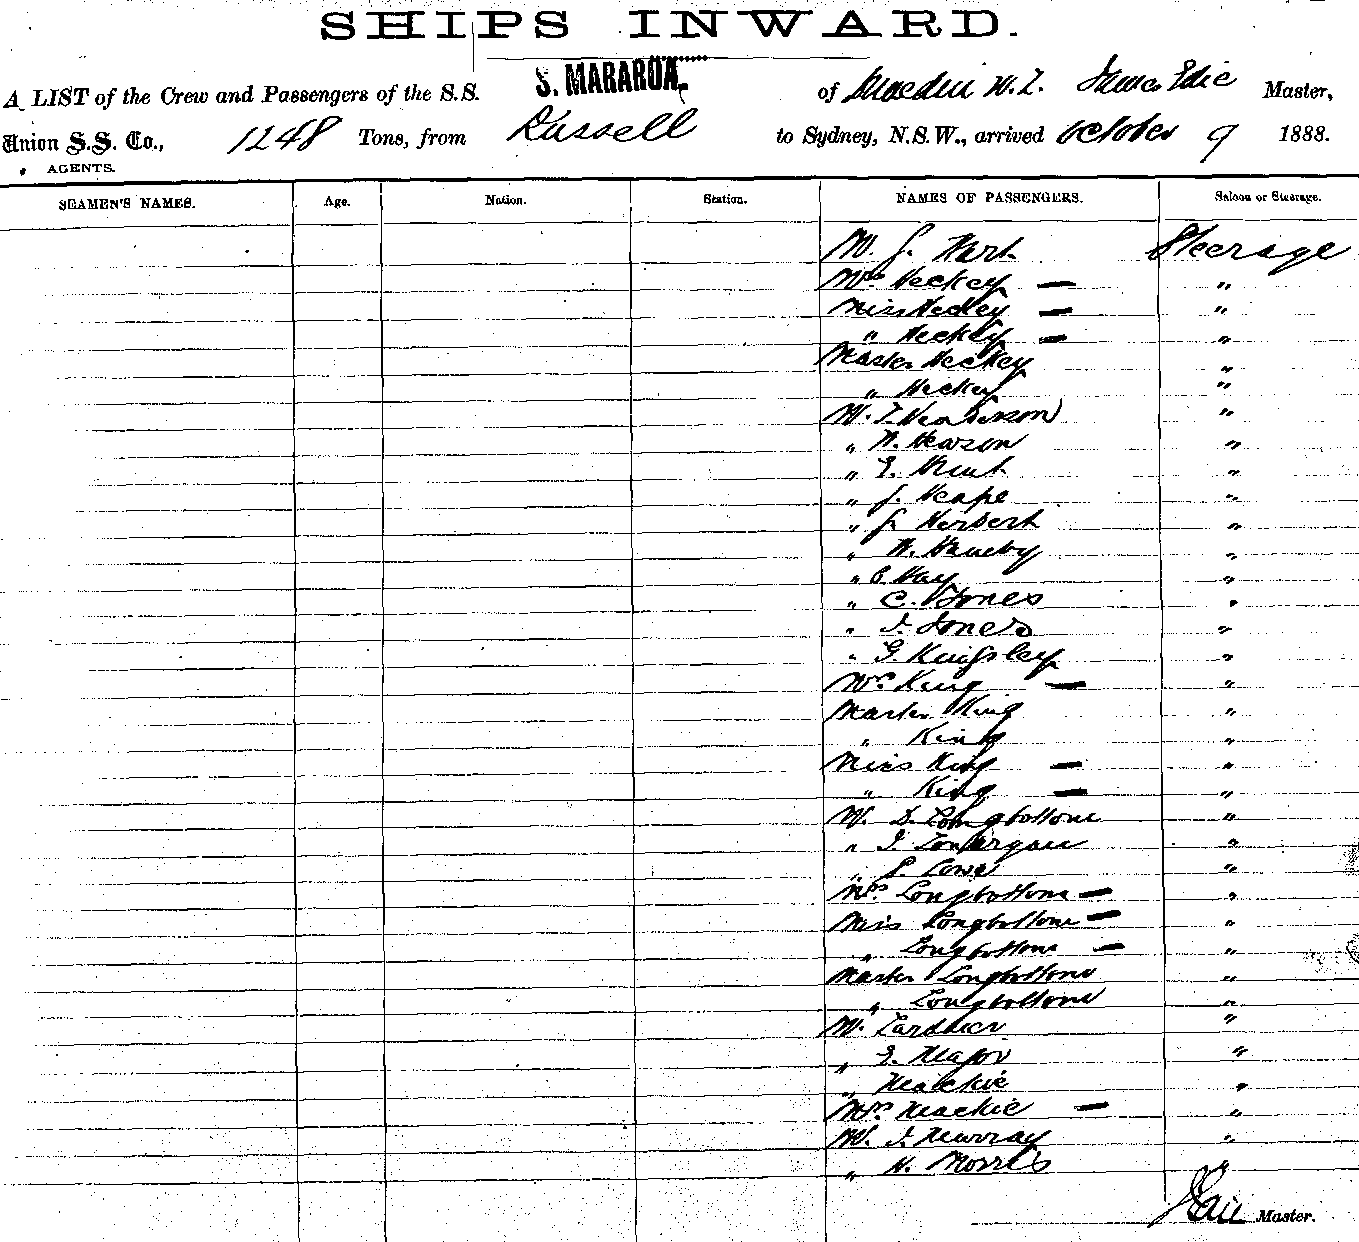 SHIPS INWARD.
A LIST of the Crew and Passengers of the S.S. S. MARAROA, of Dunedin N.Z. James Edie Master,
Union S.S. Co., 1248 Tons, from Russell to Sydney, N.S.W., arrived October 9 1888.
AGENTS.
SEAMEN'S NAMES. Age. Nation. Station. NAMES OF PASSENGERS. Saloon or Steerage.
M. J. Hart Steerage
Mrs Heckey — "
Miss Heckey — "
" Heckey — "
Master Heckey "
" Heckey "
M. T. Henderson "
" W. Hewson "
" G. Hunt "
" J. Heape "
" J. Herbert "
" W. "
" C. Hay "
" C. Jones "
" J. Jones "
" G. Kingsley "
Mrs King — "
Master King "
" King "
Miss King — "
" King — "
M. D. Longbottom "
" J. Lonergan "
" Lowe "
Mrs Longbottom — "
Miss Longbottom — "
" Longbottom — "
Master Longbottom "
" Longbottom "
M. Lardner "
" G. Major "
" Mackie "
Mrs Mackie — "
M. J. Murray "
" H. Morris "
Master.